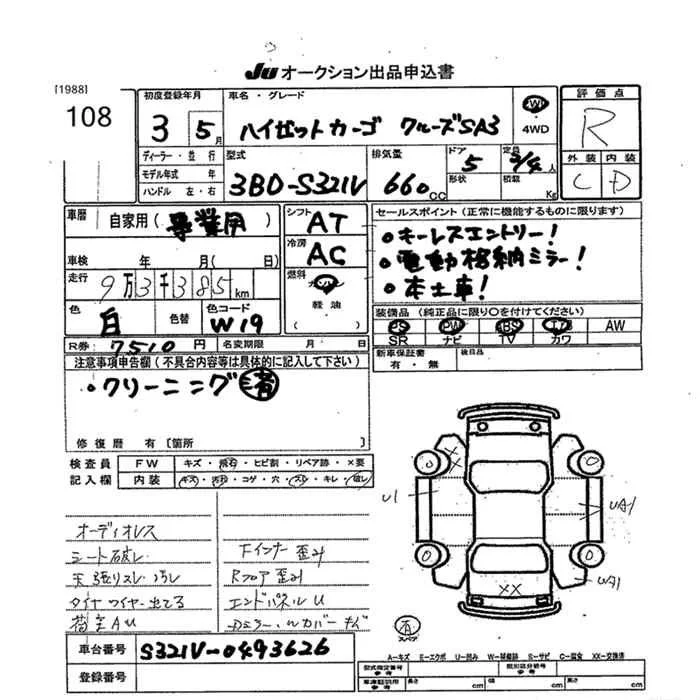 JU オークション出品申込書
[1988]
108
初度登録年月
3 5月
車名・グレード
ハイゼットカーゴ クルーズSA3
2WD
4WD
評価点
R
外装 内装
C D
ディーラー・並行
モデル年式 年
ハンドル 左・右
型式
3BD-S321V
排気量
660cc
ドア
5
形状
定員
2/4人
積載
Kg
車歴
自家用(事業用)
シフト
AT
冷房
AC
燃料
ガソリン
軽油
車検 年 月( 日)
走行
9万3千385km
色
白
色替
色コード
W19
R券: 7510円
名変期限 月 日
セールスポイント(正常に機能するものに限ります)
・キーレスエントリー!
・電動格納ミラー!
・本土車!
装備品(純正品に限り○を付けてください)
PS PW ABS エアB AW
SR ナビ TV カワ
新車保証書
有・無
後日品
注意事項申告欄(不具合内容等は具体的に記入して下さい)
・クリーニング済
修復歴 有[箇所 ]
検査員
記入欄
FW キズ・飛石・ヒビ割・リペア跡・×要
内装 キズ・汚れ・コゲ・穴・スレ・キレ・破レ
オーディオレス
シート破レ
天張りスレ・汚レ
タイヤワイヤー出てる
荷室AU
Fインナー歪み
Rフロア歪み
エンドパネルU
Dミラー・ルカバーキズ
U1
UA1
UA1
XX
有
スペア
A-キズ E-エクボ U-凹み W-補修跡 S-サビ C-腐食 XX-交換済
車台番号
S321V-0493626
登録番号
型式指定番号
参考
類別区分番号
参考
車庫証明用
参考
長さ cm
幅 cm
高さ cm